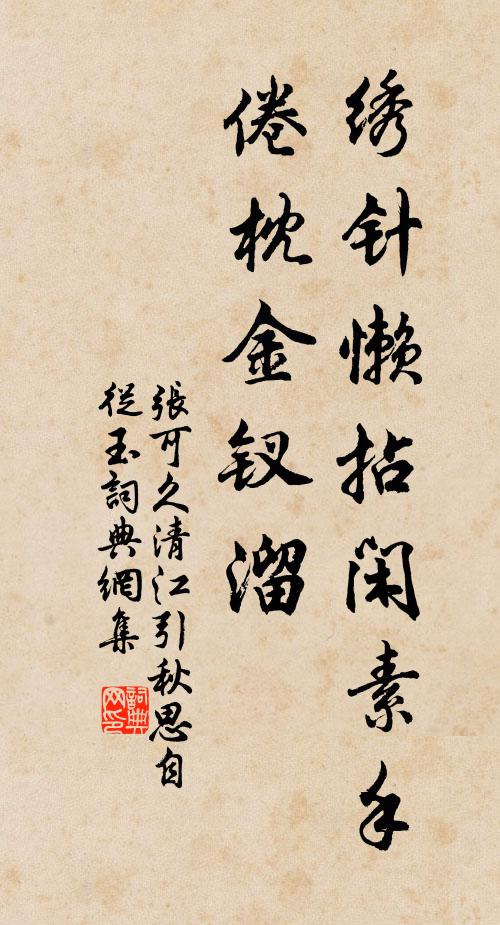 绣针懒拈闲素手
倦枕金钗溜
張可久清江引秋思自
從玉詞典網集
詞典網印